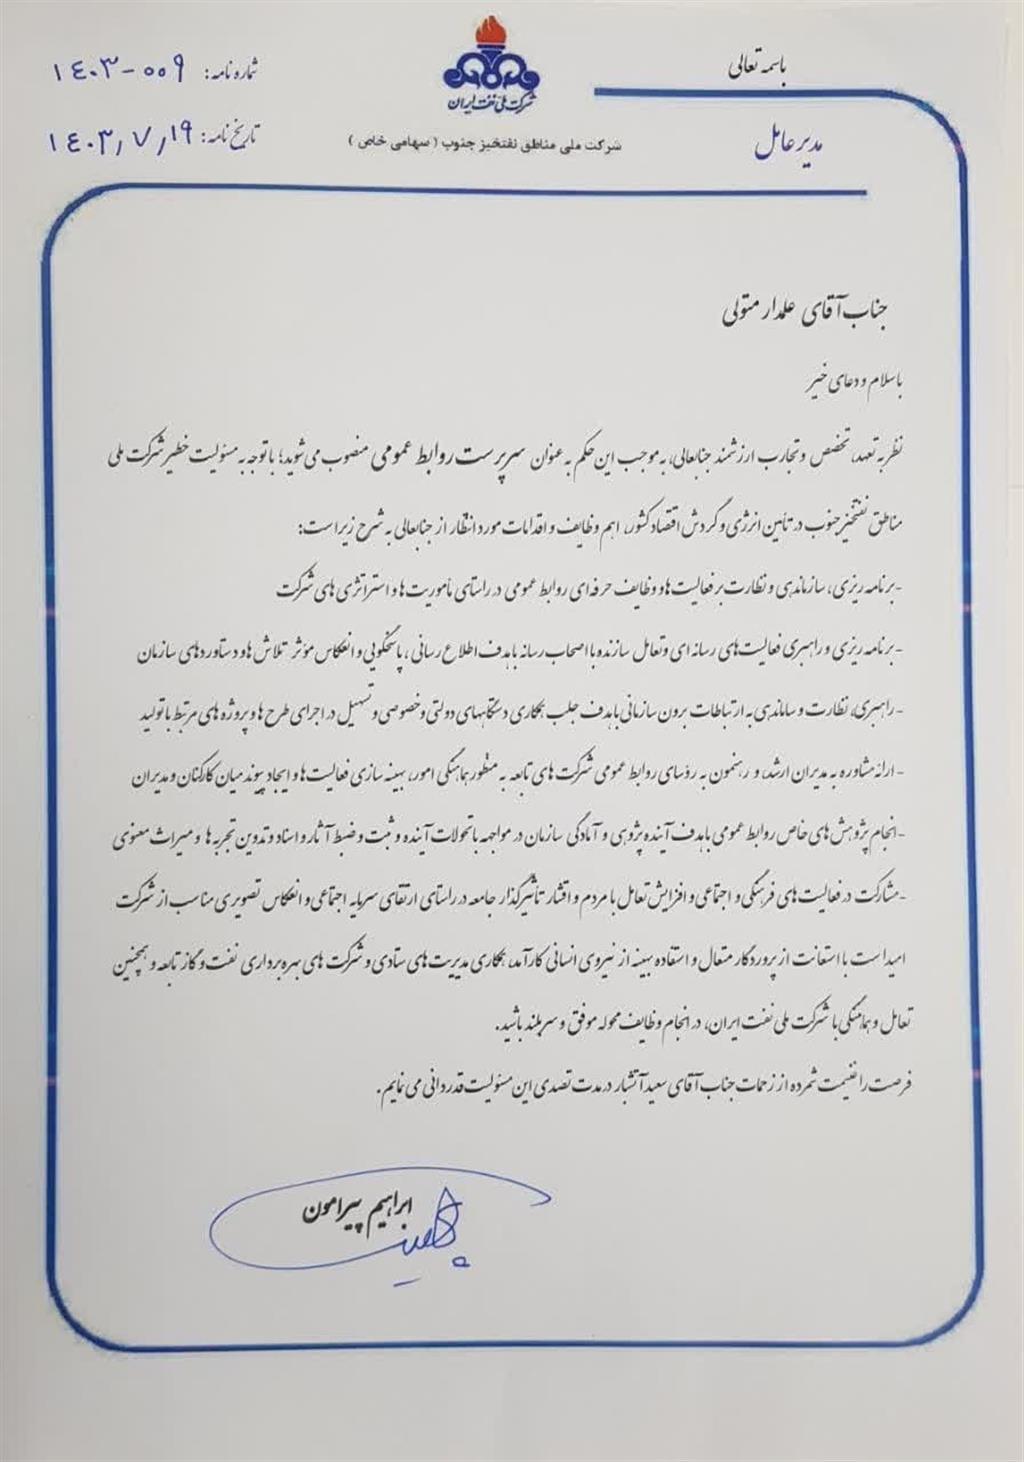 باسمه تعالی
مدیر عامل
شرکت ملی نفت ایران
شرکت ملی مناطق نفتخیز جنوب ( سهامی خاص )
شماره نامه: ۱۴۰۳-۰۰۹
تاریخ نامه: ۱۴۰۳/۷/۱۹
جناب آقای علمدار متولی
با سلام و دعای خیر
نظر به تعهد، تخصص و تجارب ارزشمند جنابعالی، به موجب این حکم به عنوان سرپرست روابط عمومی منصوب می شوید؛ با توجه به مسئولیت خطیر شرکت ملی
مناطق نفتخیز جنوب در تأمین انرژی و گردش اقتصاد کشور، اهم وظایف و اقدامات مورد انتظار از جنابعالی به شرح زیر است:
-برنامه ریزی، سازماندهی و نظارت بر فعالیت ها و وظایف حرفه ای روابط عمومی در راستای مأموریت ها و استراتژی های شرکت
-برنامه ریزی و راهبری فعالیت های رسانه ای و تعامل سازنده با اصحاب رسانه با هدف اطلاع رسانی، پاسخگویی و انعکاس مؤثر تلاش ها و دستاوردهای سازمان
-راهبری، نظارت و ساماندهی به ارتباطات برون سازمانی با هدف جلب همکاری دستگاههای دولتی و خصوصی و تسهیل در اجرای طرح ها و پروژه های مرتبط با تولید
-ارائه مشاوره به مدیران ارشد، و رهنمون به رؤسای روابط عمومی شرکت های تابعه به منظور هماهنگی امور، بهینه سازی فعالیت ها و ایجاد پیوند میان کارکنان و مدیران
-انجام پژوهش های خاص روابط عمومی با هدف آینده پژوهی و آمادگی سازمان در مواجهه با تحولات آینده و ثبت و ضبط آثار و اسناد و تدوین تجربه ها و میراث معنوی
-مشارکت در فعالیت های فرهنگی و اجتماعی و افزایش تعامل با مردم و اقشار تأثیرگذار جامعه در راستای ارتقای سرمایه اجتماعی و انعکاس تصویری مناسب از شرکت
امید است با استعانت از پروردگار متعال و استفاده بهینه از نیروی انسانی کارآمد، همکاری مدیریت های ستادی و شرکت های بهره برداری نفت و گاز تابعه و همچنین
تعامل و هماهنگی با شرکت ملی نفت ایران، در انجام وظایف محوله موفق و سربلند باشید.
فرصت را غنیمت شمرده از زحمات جناب آقای سعید آتشبار در مدت تصدی این مسئولیت قدردانی می نمایم.
ابراهیم پیرامون